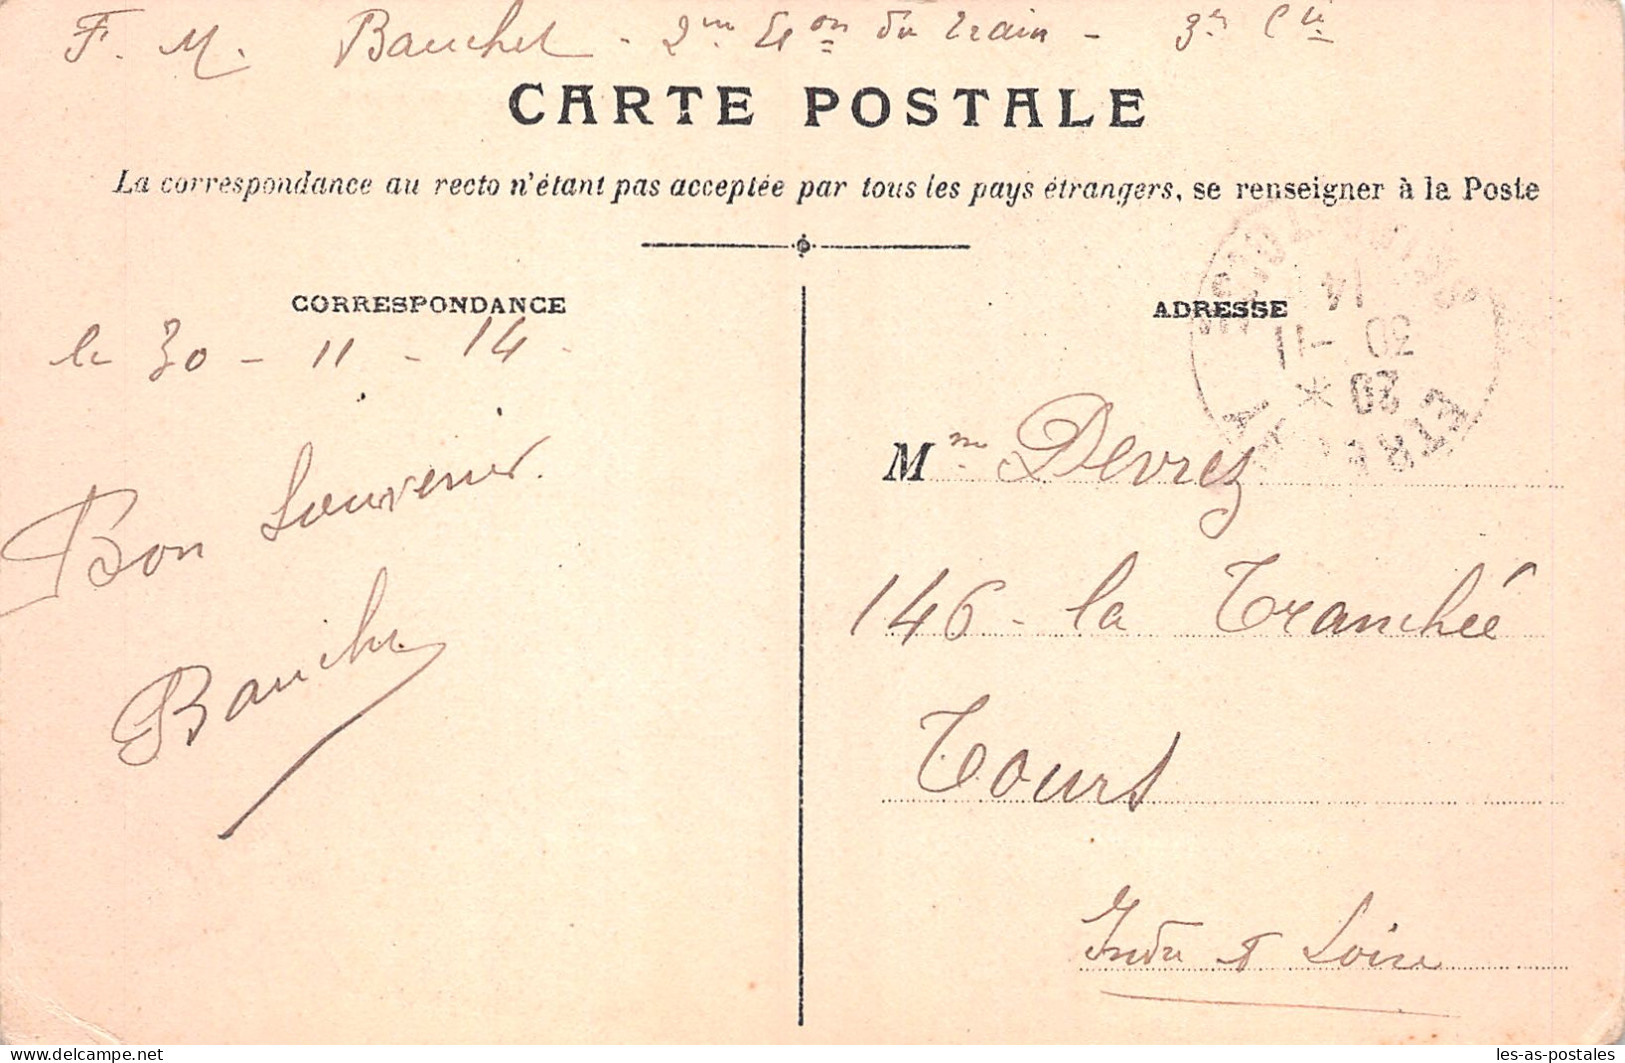 F. M. Bauchet - 2me Eon du train - 3e Cie
CARTE POSTALE
La correspondance au recto n'étant pas acceptée par tous les pays étrangers, se renseigner à la Poste
CORRESPONDANCE
ADRESSE
14
30 -11
20 *
le 30 - 11 - 14 -
Bon Souvenir.
Mme Devrez
146 - la Tranchée
Tours
Indre & Loire
les-as-postales